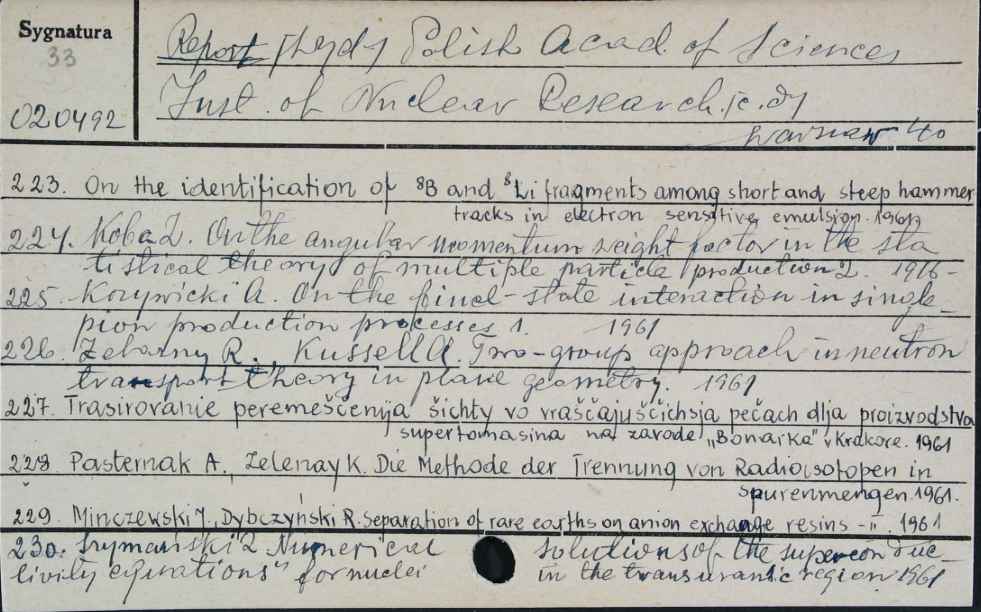 Sygnatura
33
020492
Report Polish Acad. of Sciences
Inst. of Nuclear Research.
Warszaw 40
223. On the identification of ⁸B and ⁸Li fragments among short and steep hammer
tracks in electron sensitive emulsion. 1961
224. Koba Z. On the angular momentum weight factor in the sta
tistical theory of multiple particle production 2. 1916-
225. A. On the final-state interaction in single-
pion production processes 1. 1961
226. Żelazny R., Kussell A. Two-group approach in neutron
transport theory in plane geometry. 1961
227. Trasirovanie peremeščenija šichty vo vraščajuščichsja pečach dlja proizvodstva
supertomasina na zavode "Bonarka" v Krakore. 1961
228. Pasternak A., Zelenay K. Die Methode der Trennung von Radioisotopen in
spurenmengen. 1961.
229. Minczewski J., Dybczyński R. Separation of rare earths on anion exchange resins - II. 1961
230. Szymański Z. Numerical solutions of the supercon duc
tivity equations" for nuclei in the transuranic region 1961